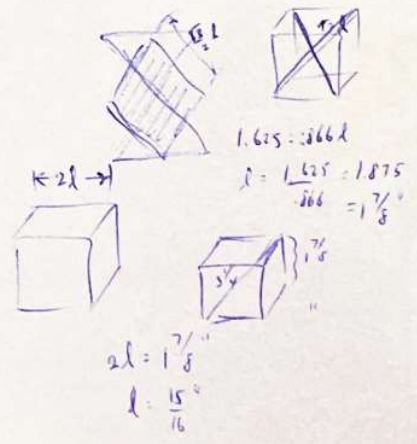 √3/2 l
l
1.625 = .866 l
l = 1.625/.866 = 1.875
= 1 7/8"
← 2l →
1 7/8
3 1/4
"
2l = 1 7/8"
l = 15/16"